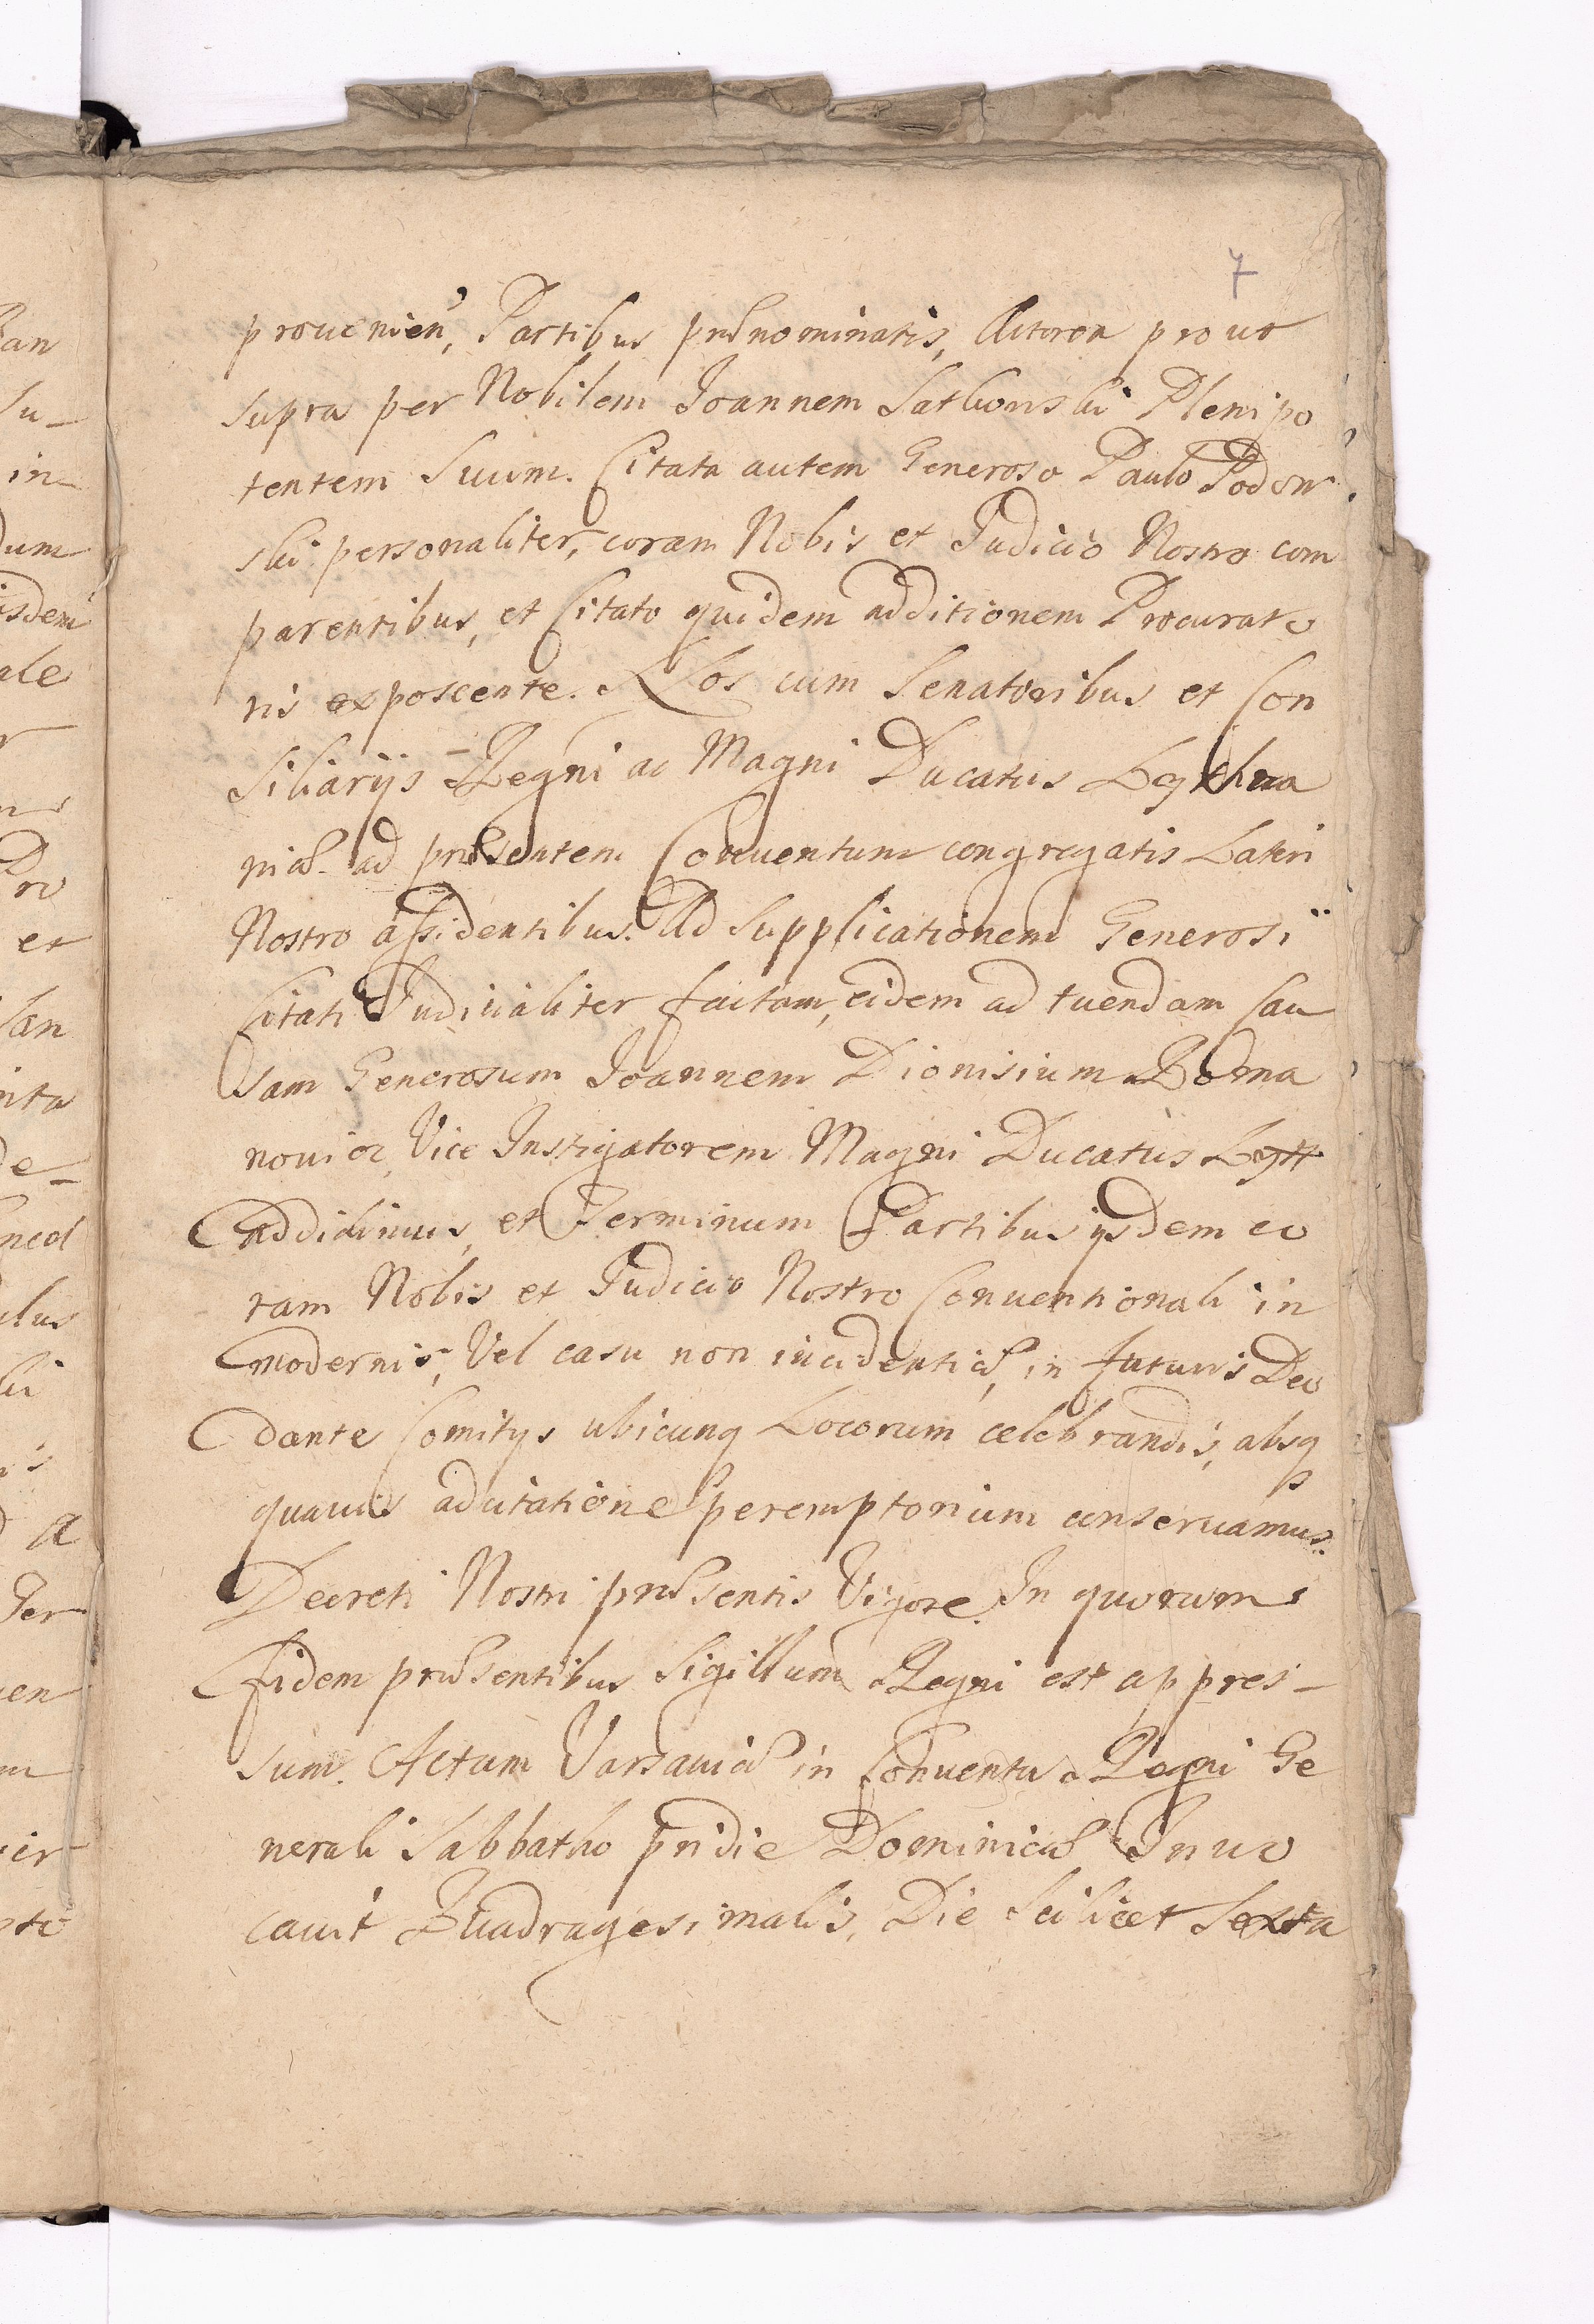 7
prouenien, Partibus prænominatis, Actorea prout
supra per Nobilem Joannem Satkowski Plenipo
tentem Suum. Citata autem Generoso Paulo Podow
ski personaliter, coram Nobis et Judicio Nostro com
parentibus, et Citato quidem additionem Procurato
ris exposcente. Nos cum Senatoribus et Con
siliarijs Regni ac Magni Ducatus Lythua
niæ ad præsentem Conuentum congregatis Lateri
Nostro assidentibus. Ad Supplicationem Generosi
Citati Judicialiter factam, eidem ad tuendam Cau
sam Generosum Joannem Dionisium Roma
nouicz Vice Instigatorem Magni Ducatus Lytt
addidimus, et Terminum Partibus ijsdem co
ram Nobis et Judicio Nostro Conuentionali in
modernis, Vel casu non incidentiæ, in futuris Deo
dante Comitijs ubicunq Locorum celebrandis, absq
quauis adcitatione peremptorium conseruamus.
Decreti Nostri præsentis Vigore. In quorum
fidem præsentibus Sigillum Regni est appres-
sum. Actum Varsauiæ in Conuentu Regni Ge
nerali Sabbatho pridie Dominicæ Inuo
cauit Quadragesimalis, Die Scilicet Sexta